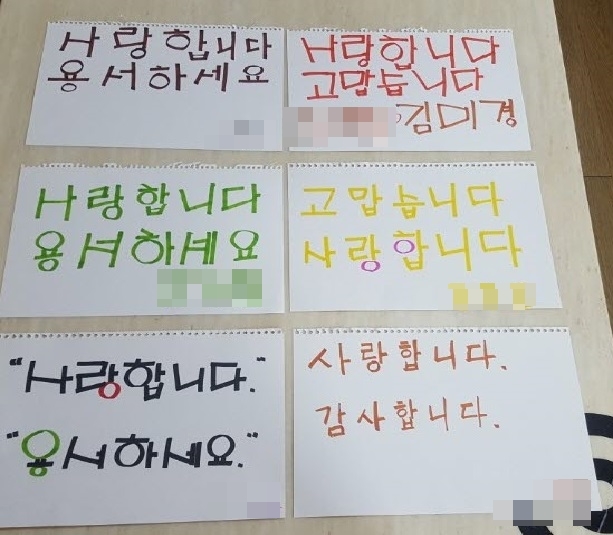 사랑합니다
용서하세요
사랑합니다
고맙습니다
김미경
사랑합니다
용서하세요
고맙습니다
사랑합니다
"사랑합니다."
"용서하세요."
사랑합니다.
감사합니다.